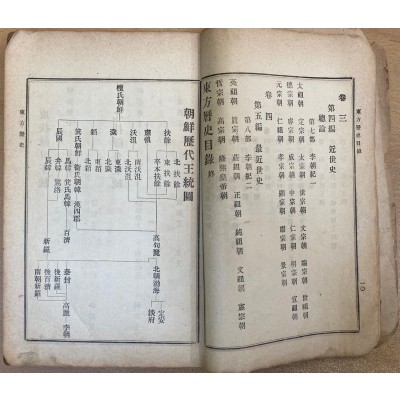 東方歷史目錄
一〇
卷三
第四編 近世史
總論
第七部 李朝紀一
太祖朝 定宗朝 太宗朝 世宗朝 文宗朝 端宗朝 世祖朝
德宗朝 睿宗朝 成宗朝 中宗朝 仁宗朝 明宗朝 宣祖朝
元宗朝 仁祖朝 孝宗朝 顯宗朝 肅宗朝 景宗朝
卷四
第五編 最近世史
第八部 李朝紀二
英祖朝 眞宗朝 莊祖朝 正祖朝 純祖朝 文祖朝 憲宗朝
哲宗朝 高宗朝 隆熙皇帝朝
東方歷史目錄
朝鮮歷代王統圖
檀氏朝鮮
扶餘
北扶餘
東扶餘
卒本扶餘
高句麗
北朝渤海
定安
沃沮
南沃沮
北沃沮
濊
東濊
北濊
貊
東貊
北貊
箕氏朝鮮
衛氏朝鮮
漢四郡
馬韓
箕氏馬韓
百濟
辰國
弁韓
駕洛
辰韓
新羅
南朝新羅
泰封
高麗
李朝
後百濟
東方歷史